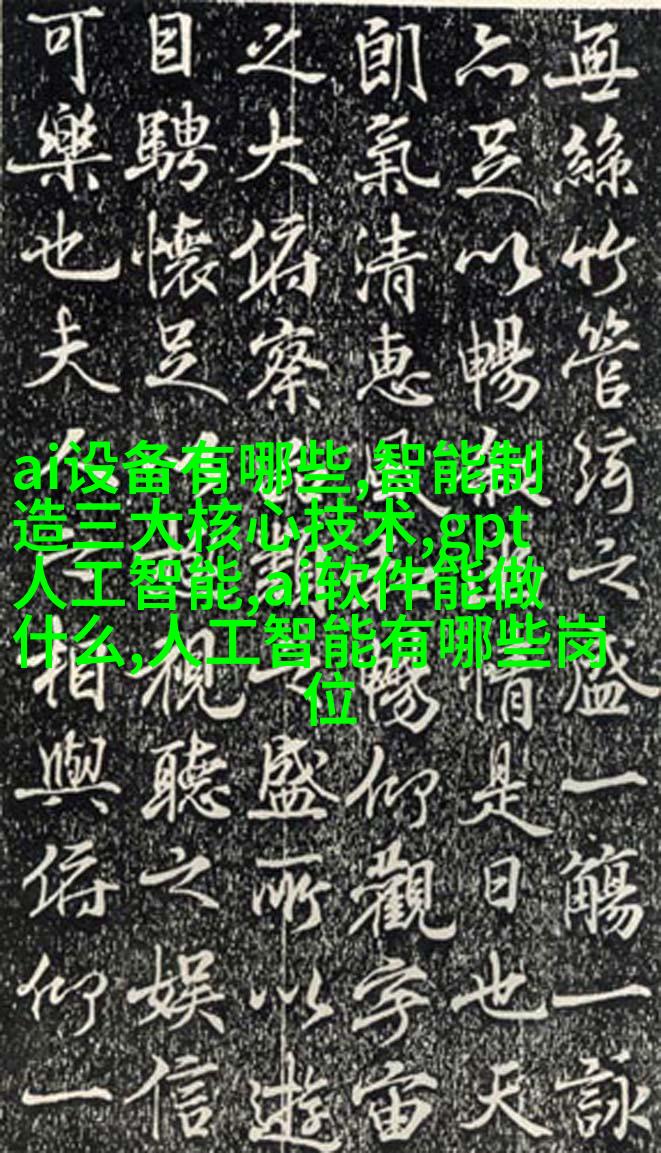 無絲竹管絃之盛一觴一詠
亦足以暢敘幽情是日也天
朗氣清惠風和暢仰觀宇宙
之大俯察品類之盛所以遊
目騁懷足以極視聽之娛信
可樂也夫人之相與俯仰一
ai设备有哪些,智能制
造三大核心技术,gpt
人工智能,ai软件能做
什么,人工智能有哪些岗
位